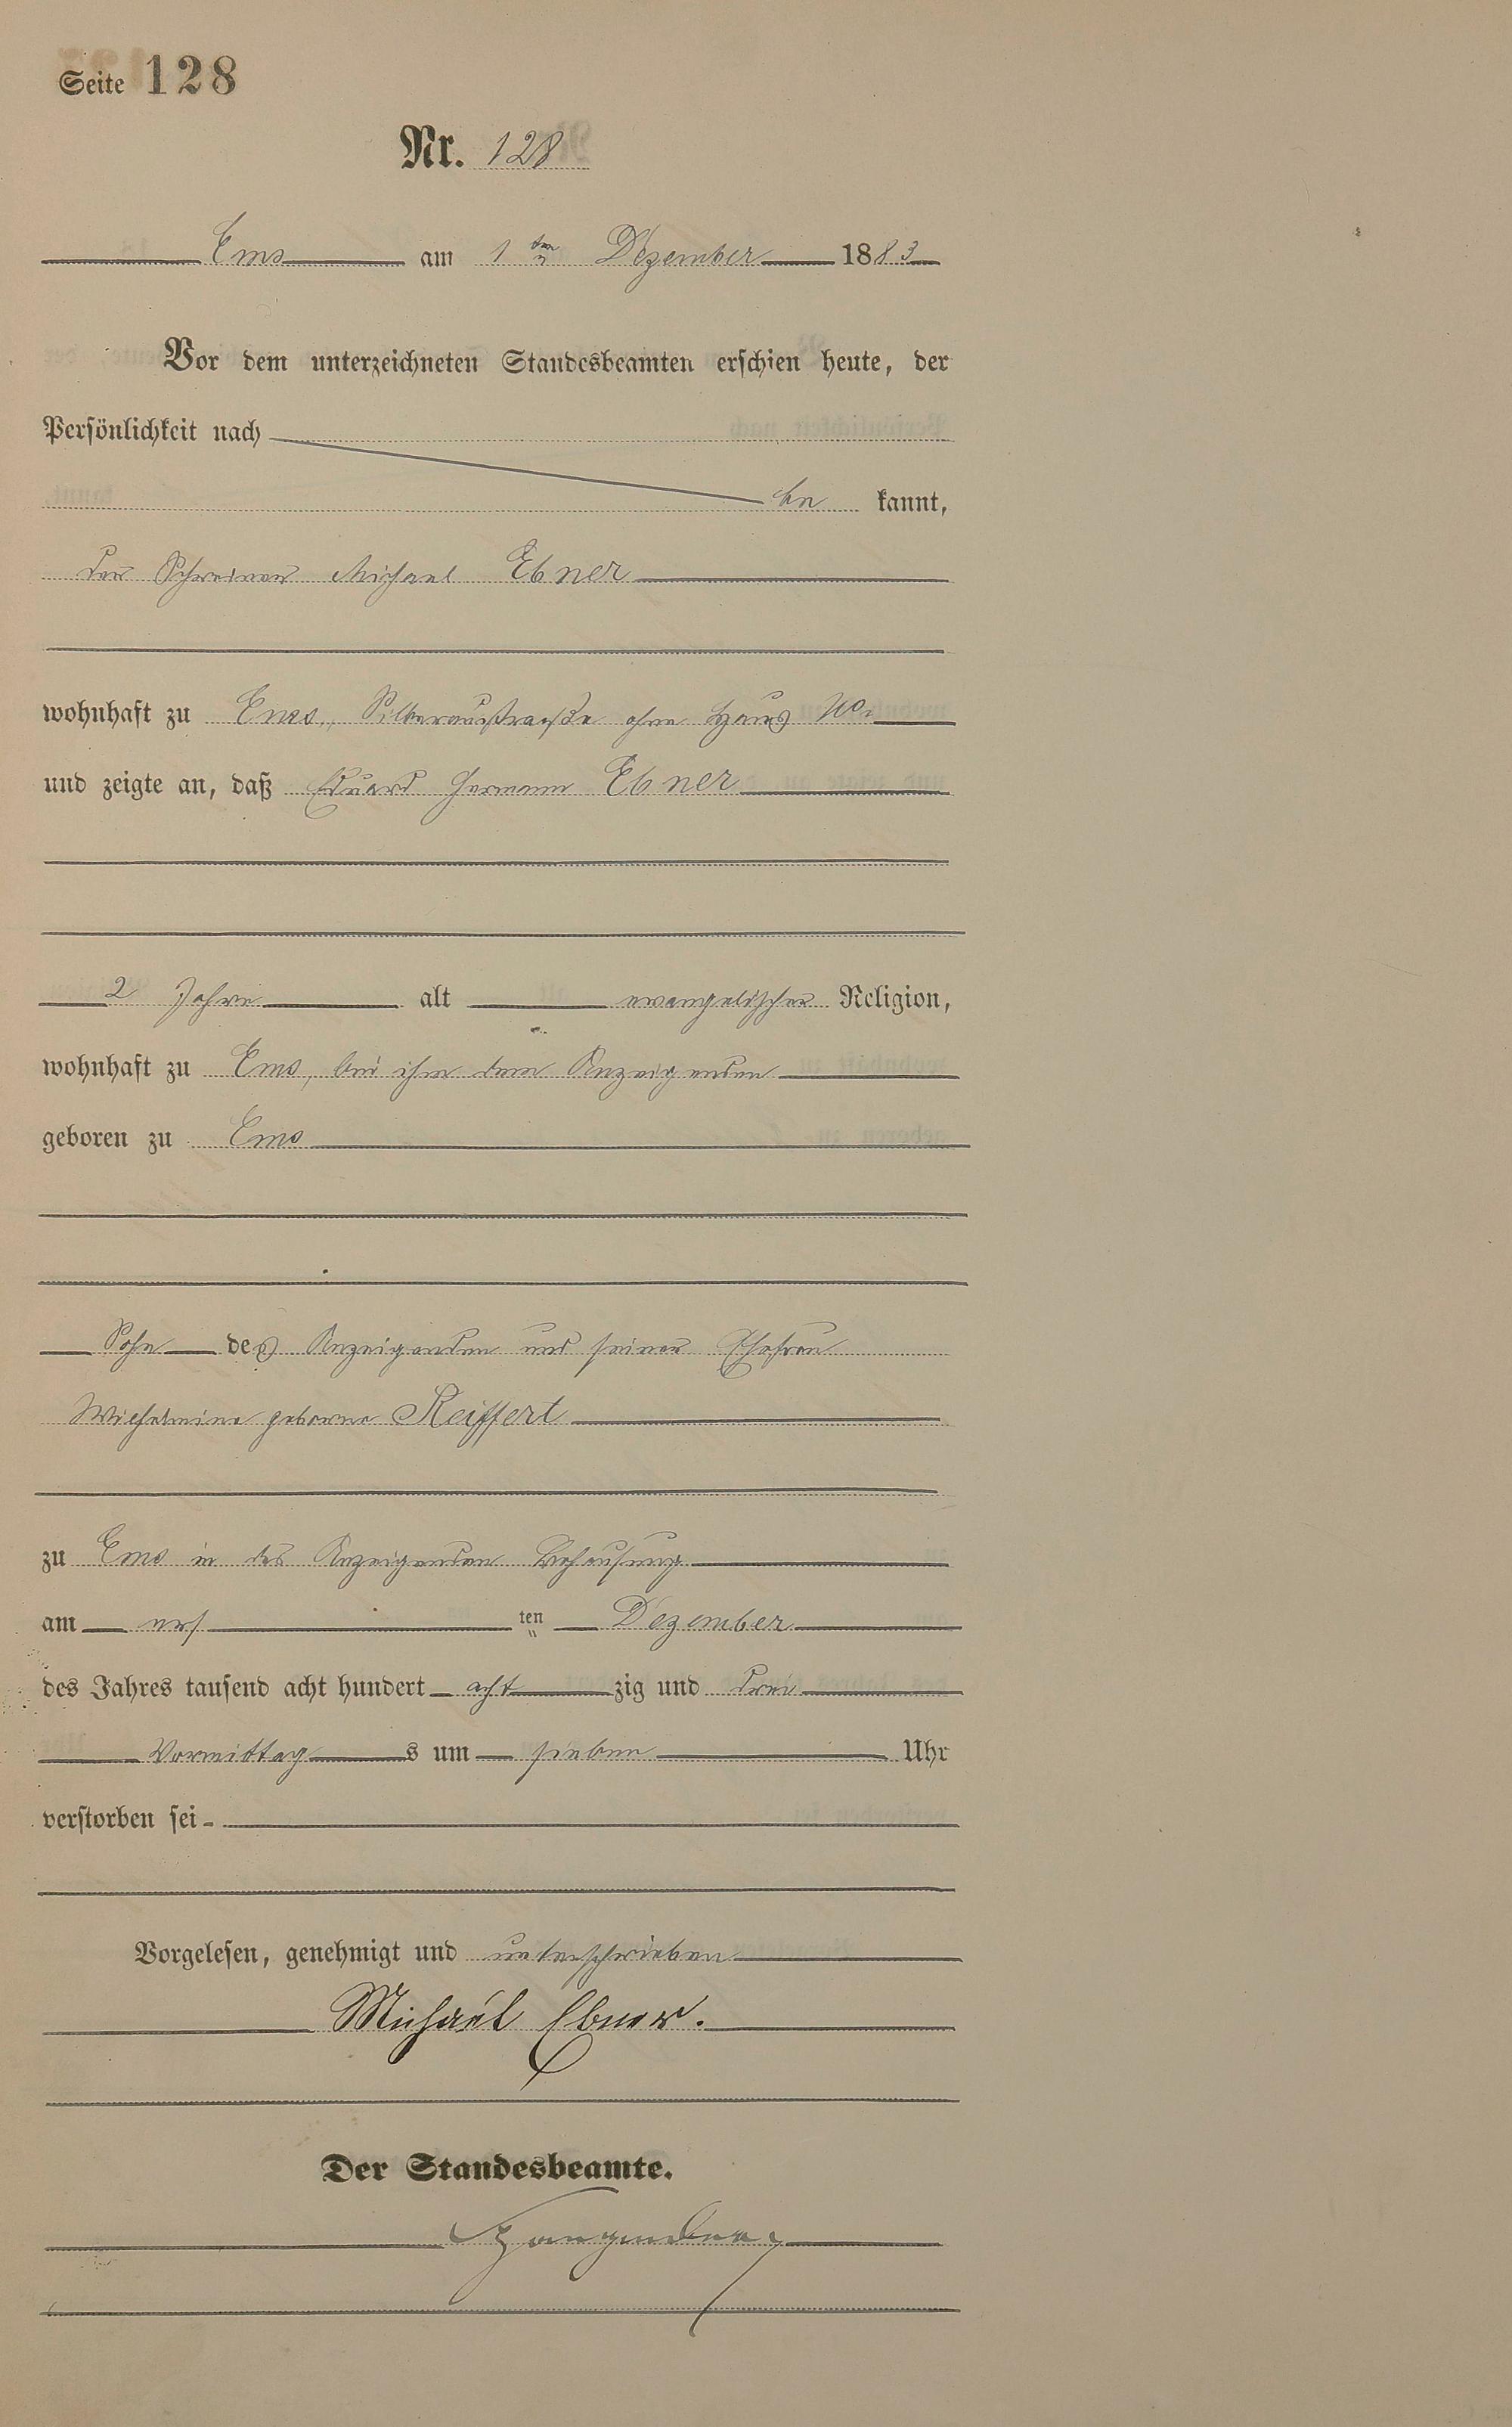 Seite 128
Nr. 128
Ems am 1ten Dezember 1883
Vor dem unterzeichneten Standesbeamten erschien heute, der
Persönlichkeit nach
be kannt,
der Schreiner Michael Ebner
wohnhaft zu Ems, Silberaustraße ohne Haus No.
und zeigte an, daß Eduard Hermann Ebner
2 Jahre alt evangelischer Religion,
wohnhaft zu Ems, bei ihm dem Anzeigenden
geboren zu Ems
Sohn des Anzeigenden und seiner Ehefrau
Wilhelmine geborne Reiffert
zu Ems in des Anzeigenden Behausung
am ers ten Dezember
des Jahres tausend acht hundert acht zig und drei
Vormittag s um sieben Uhr
verstorben sei
Vorgelesen, genehmigt und unterschrieben
Michael Ebner.
Der Standesbeamte.